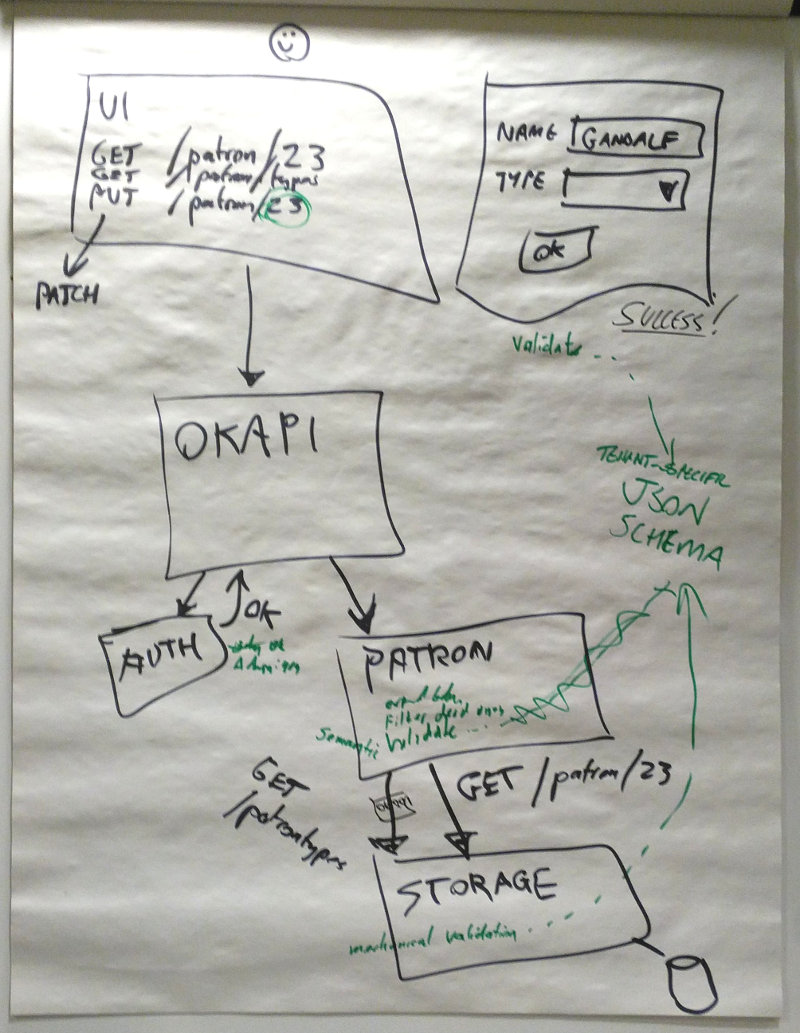 UI
GET /patron/23
GET /patron/types
PUT /patron/23
PATCH
NAME GANDALF
TYPE
OK
SUCCESS!
Validate ..
TENANT-SPECIFIC
JSON
SCHEMA
OKAPI
AUTH
OK
PATRON
Filter dead ones
Semantic Validate ...
GET
/patrontypes
GET /patron/23
STORAGE
mechanical validation